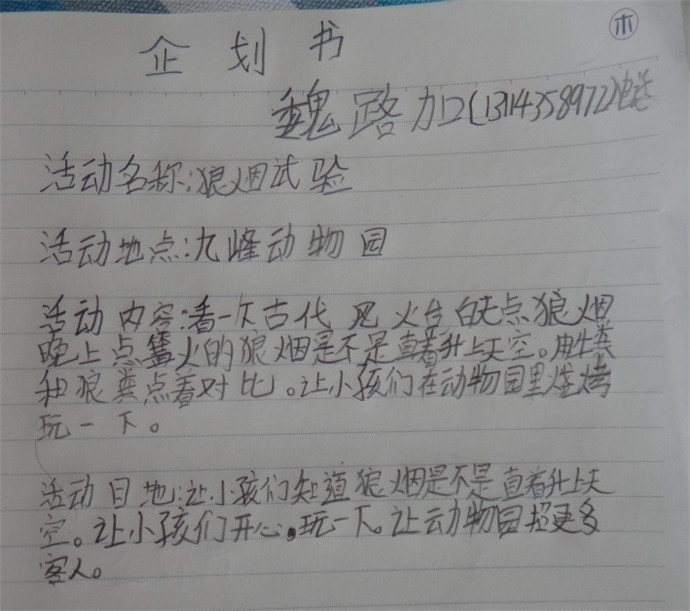 木
企划书
魏路加(13114358972)电话
活动名称:狼烟试验
活动地点:九峰动物园
活动内容:看一下古代 见火台 白天点狼烟
晚上点篝火的狼烟是不是直着升上天空。用牛粪
和狼粪点着对比。让小孩们在动物园里烧烤
玩一下。
活动目地:让小孩们知道狼烟是不是直着升上天
空。让小孩们开心,玩一下。让动物园招更多
客人。